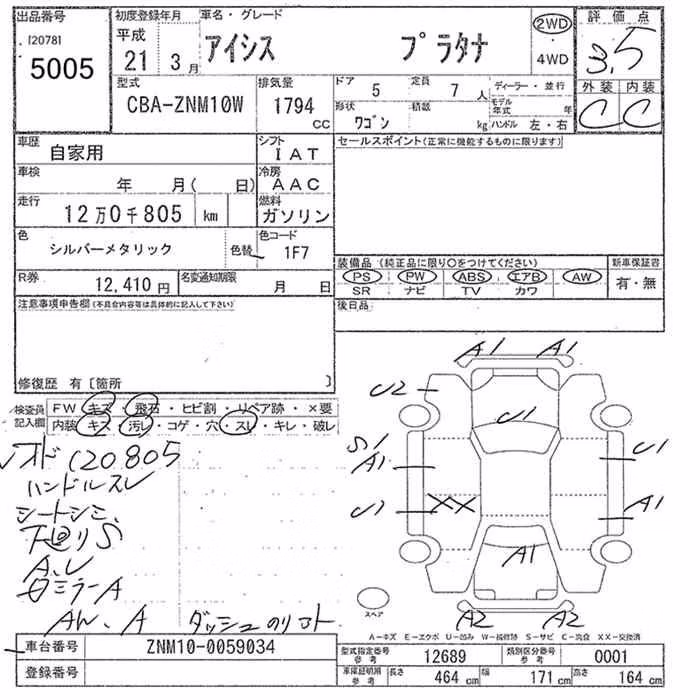 出品番号
120781
5005
初度登録年月
平成
21 3月
車名・グレード
アイシス プラタナ
2WD
・
4WD
評価点
3.5
外装 内装
C C
型式
CBA-ZNM10W
排気量
1794
CC
ドア 5 定員 7 人
形状 ワゴン 積載 kg
ディーラー・並行
モデル年式 年
ハンドル 左・右
車歴 自家用
シフト IAT
セールスポイント(正常に機能するものに限ります)
車検 年 月( 日)
冷房 AAC
走行 12万0千805 km
燃料 ガソリン
色 シルバーメタリック 色替
色コード 1F7
装備品(純正品に限り○をつけてください)
PS・PW・ABS・エアB・AW
SR ナビ TV カワ
新車保証書
有・無
R券 12,410円
名変通知期限 月 日
後日品
注意事項申告欄(不具合内容等は具体的に記入して下さい)
修復歴 有〔箇所 〕
検査員記入欄
FW キズ・飛石・ヒビ割・リペア跡・×要
内装 キズ・汚レ・コゲ・穴・スレ・キレ・破レ
オド120805
ハンドルスレ
シートシミ、
下回りS
A、U
ミラーA
AW、A ダッシュのリフト
A1 A1
U2
U1
S1
A1
U1
U1
XX
A1
A1
A2 A2
スペア
A-キズ E-エクボ U-凹み W-補修跡 S-サビ C-腐食 XX-交換済
車台番号 ZNM10-0059034
登録番号
型式指定番号 参考 12689
類別区分番号 参考 0001
車庫証明用 参考 長さ 464 cm 幅 171 cm 高さ 164 cm